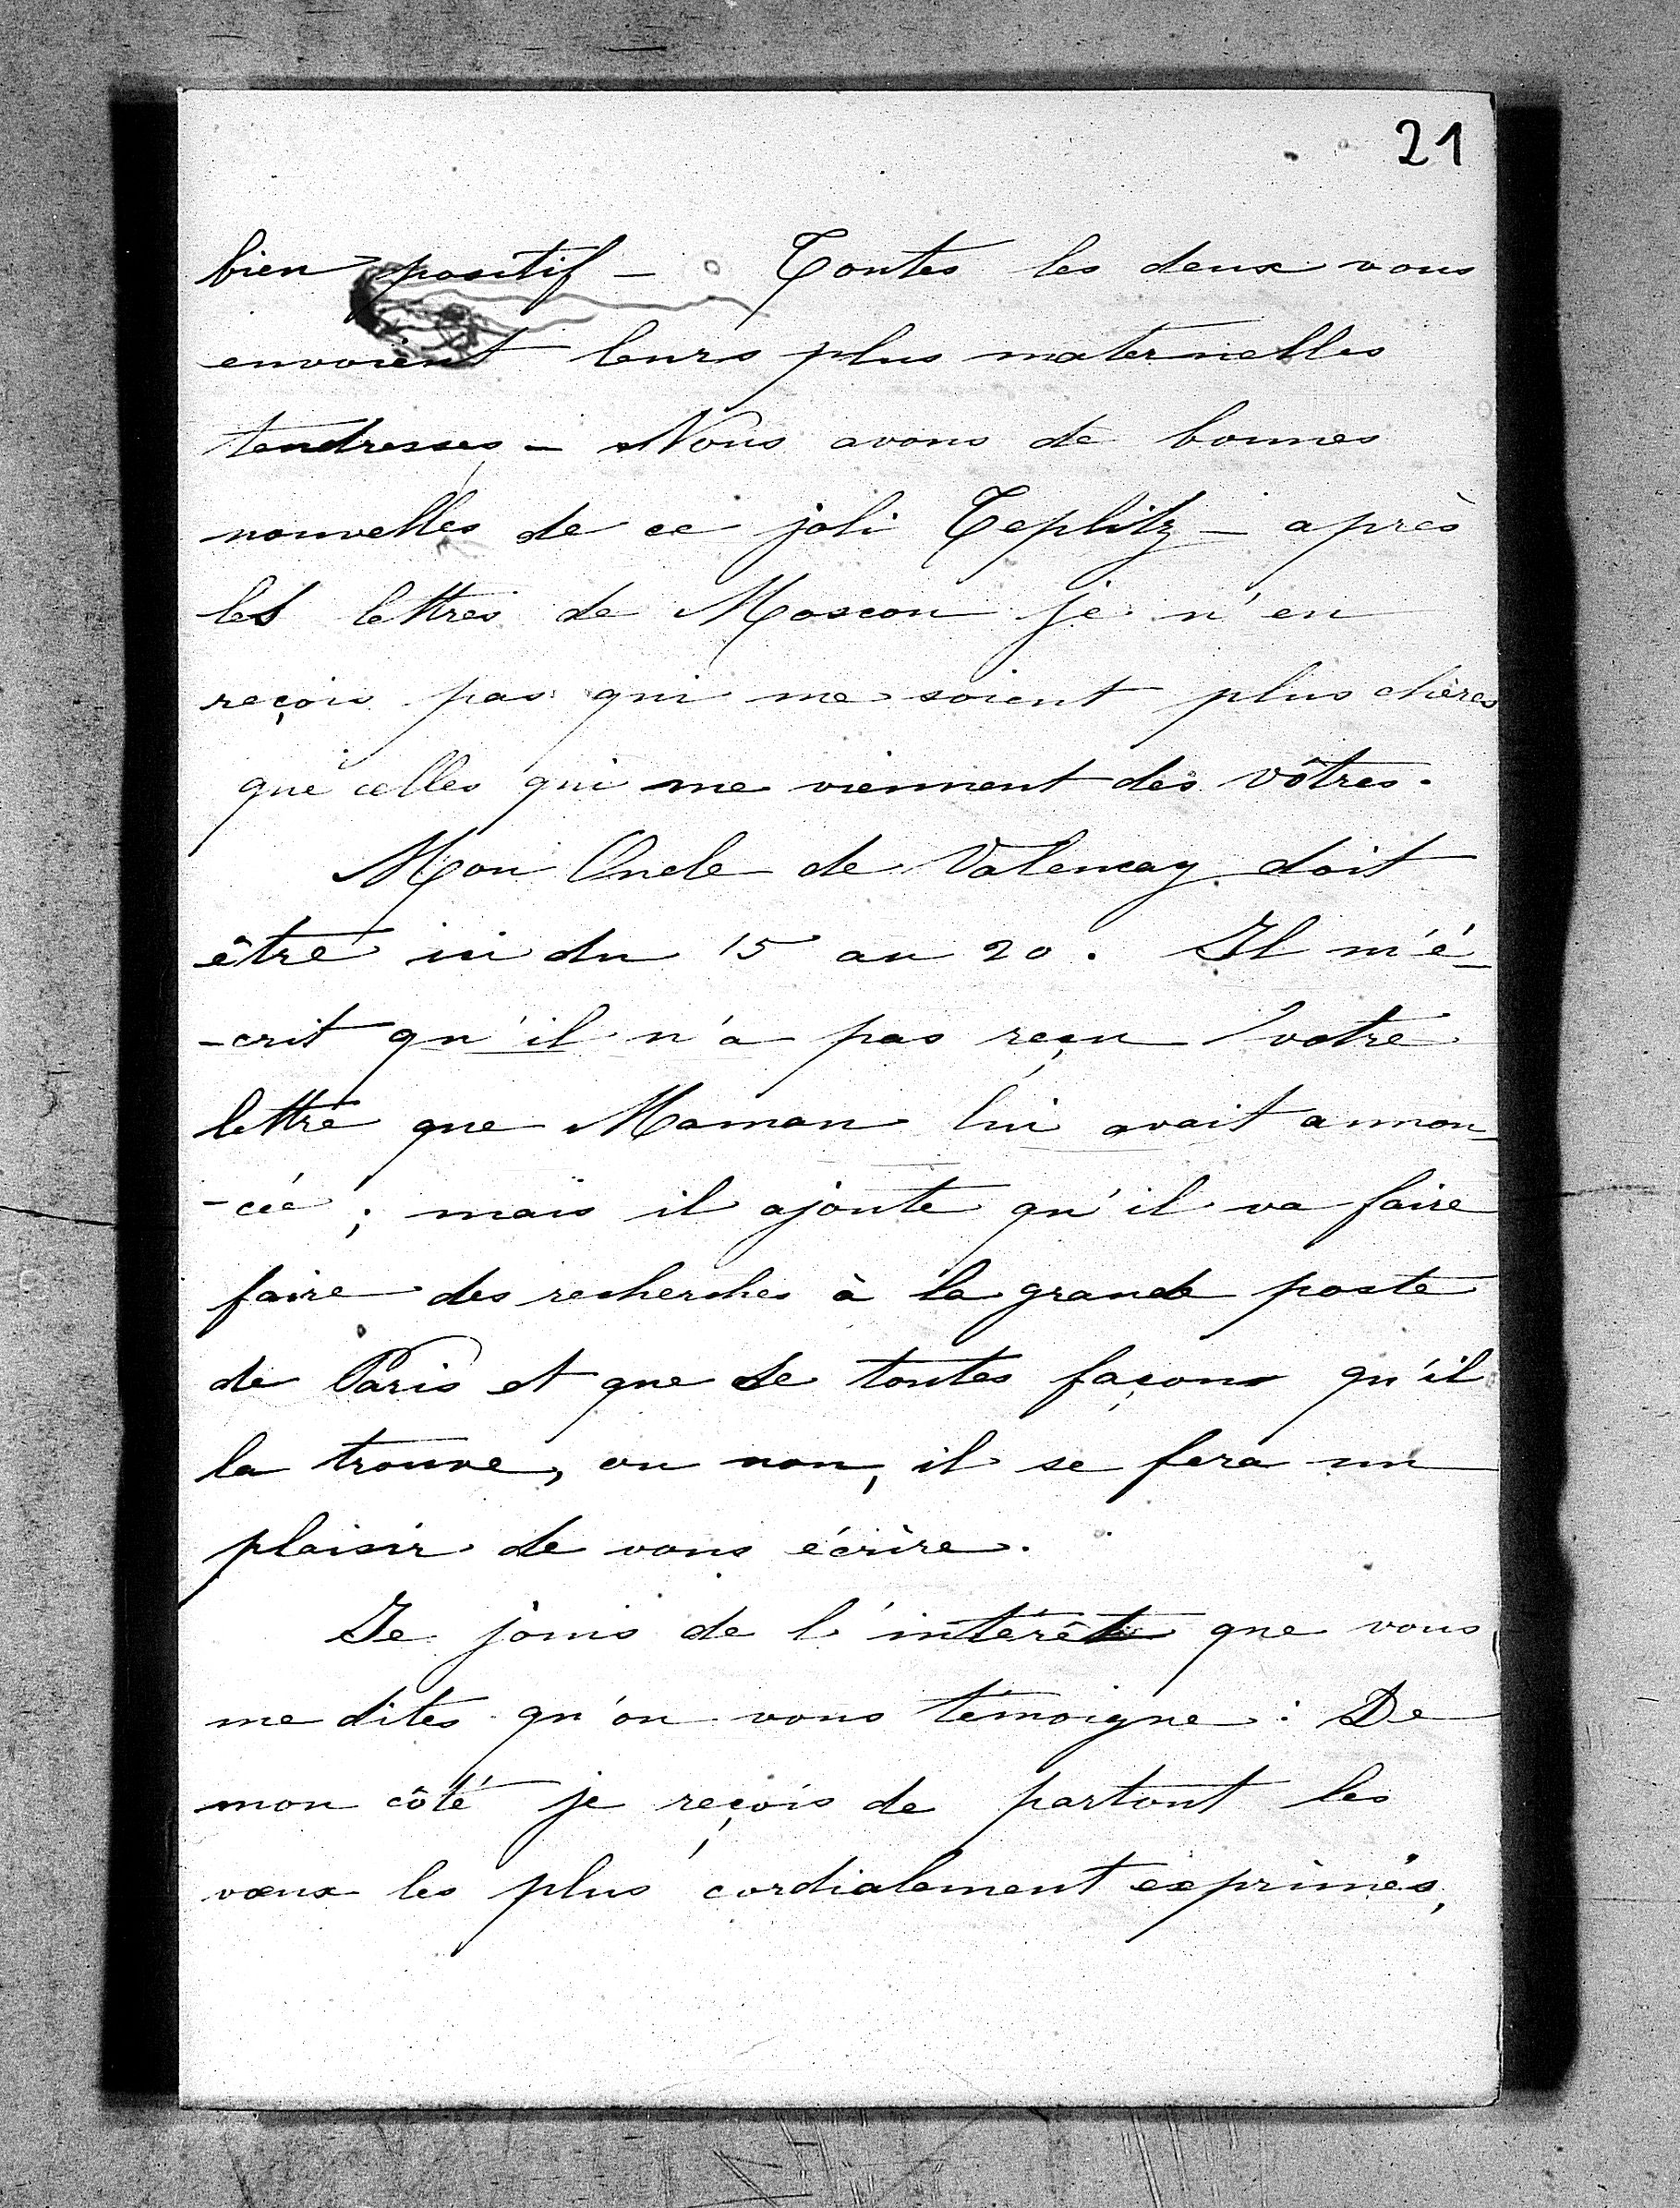 21
bien positif – Toutes les deux vous
envoient leurs plus maternelles
tendresses – Nous avons de bonnes
nouvelles de ce joli Teplitz – après
les lettres de Moscou je n'en
reçois pas qui me soient plus chères
que celles qui me viennent des vôtres.
Mon Oncle de Valencay doit
être ici du 15 au 20. Il m'é-
-crit qu'il n'a pas reçu votre
lettre que Maman lui avait annon-
-cée ; mais il ajoute qu'il va faire
faire des recherches à la grande poste
de Paris et que de toutes façons qu'il
la trouve, ou non, il se fera un
plaisir de vous écrire.
Je jouis de l'intérêt que vous
me dites qu'on vous témoigne : De
mon côté je reçois de partout les
vœux les plus cordialement exprimés,